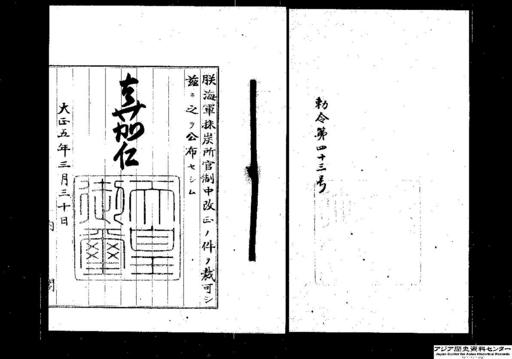 勅令第四十三号
朕海軍採炭所官制中改正ノ件ヲ裁可シ
茲ニ之ヲ公布セシム
嘉仁
天皇御璽
大正五年三月三十日
内閣
アジア歴史資料センター
Japan Center for Asian Historical Records